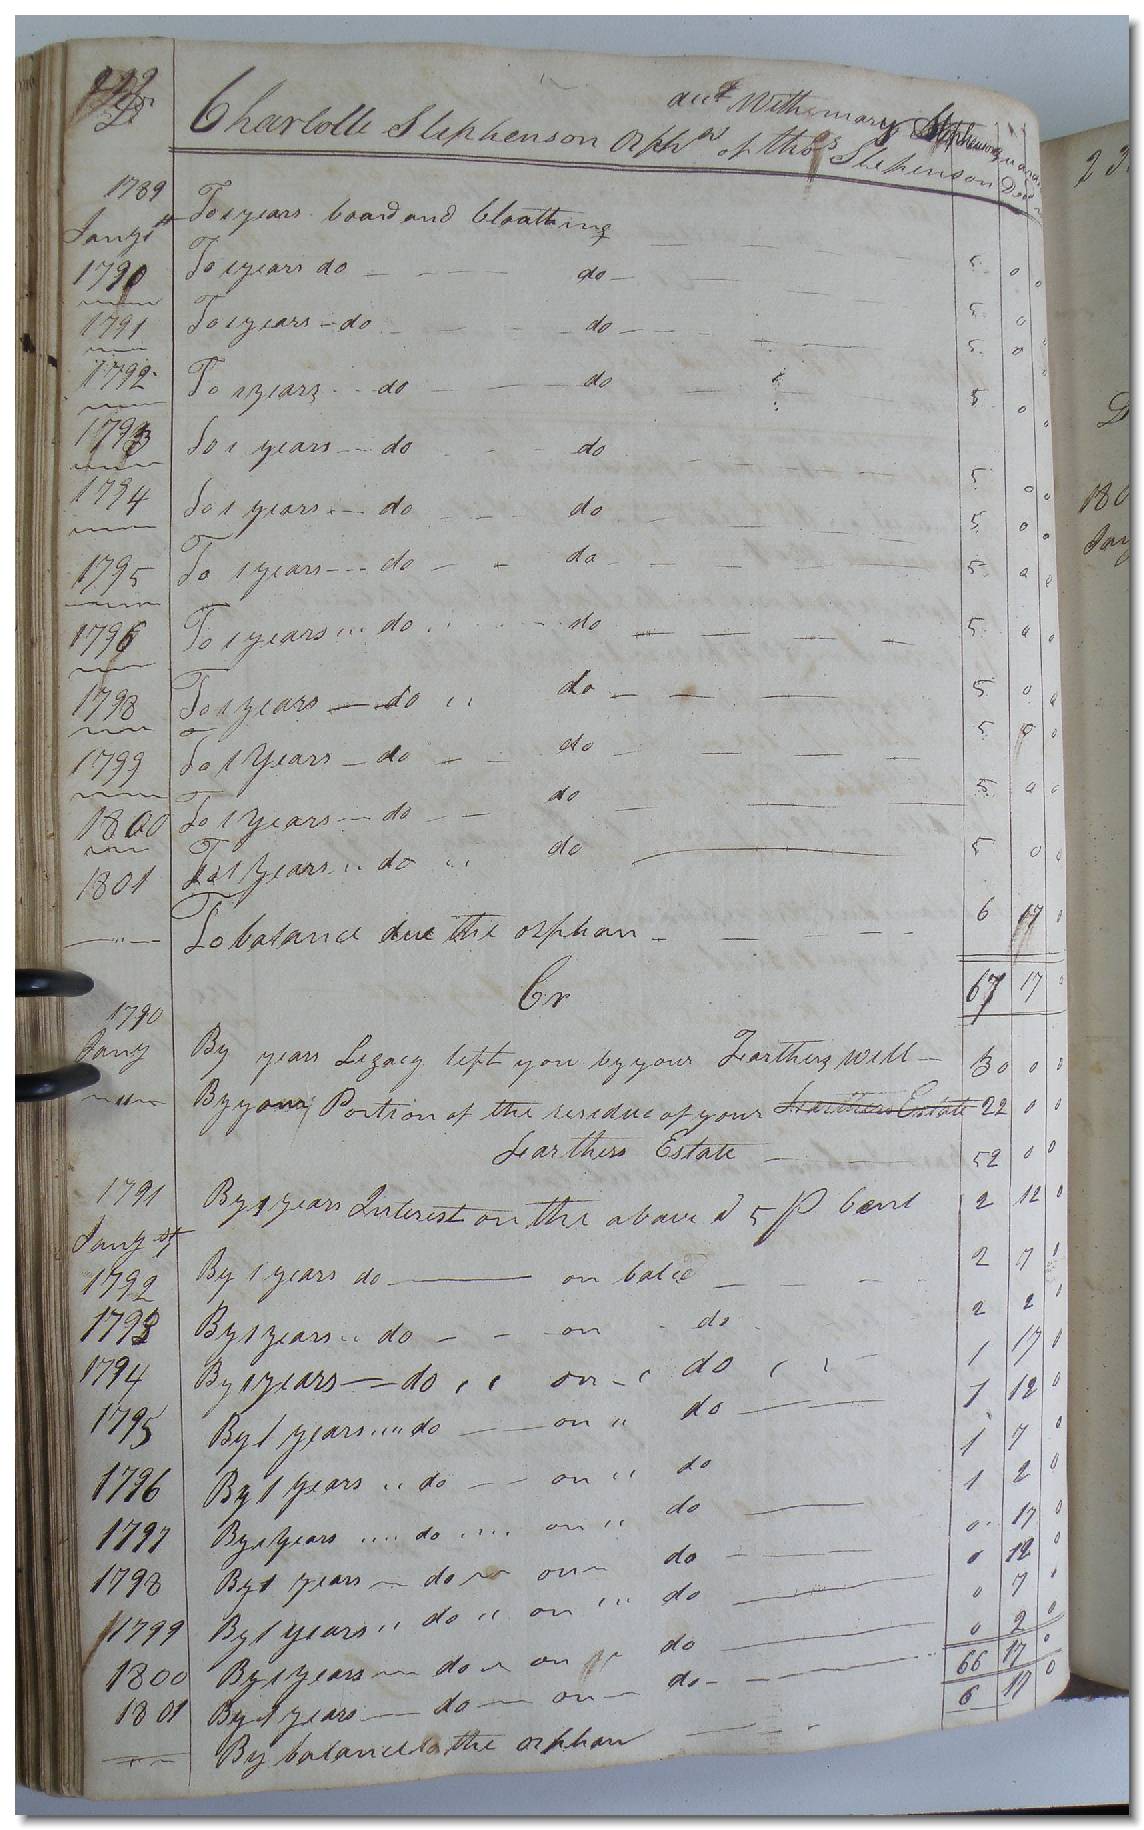 Dr
acct With mary Stephenson guardn
Charlotte Stephenson Orphn of thos Stephenson Decd
1789
Jany 1st To 1 years board and Cloathing — — — 5 0 0
1790 To 1 years do — — — do — — 5 0 0
1791 To 1 years — do — — — do — — — 5 0 0
1792 To 1 years — do — — — do — — 5 0 0
1793 To 1 years — do — — do — — — 5 0 0
1794 To 1 years — do — — do — — — 5 0 0
1795 To 1 years — do — — do — — — 5 0 0
1796 To 1 years — do do — — — 5 0 0
1798 To 1 years — do do — — — 5 0 0
1799 To 1 Years — do — — do — — — 5 0 0
1800 To 1 years — do — — do — — — 5 0 0
1801 To 1 years do do — 5 0 0
To balance due the orphan — — — — 6 17 0
Cr 67 17 0
1790
Jany By years Legacy left you by your Farthers will — 30 0 0
By your Portion of the residue of your Farthers Estate 22 0 0
Farthers Estate — — — 52 0 0
1791 By 1 years Interest on the above @ 5 P Cent 2 12 0
Jany 1st
1792 By 1 years do — on balce — — — 2 7 0
1793 By 1 years do — — on do 2 2 0
1794 By 1 years — do on do — 1 17 0
1795 By 1 years do — on do — 1 12 0
1796 By 1 years do — on do 1 7 0
1797 By 1 years do on do — 1 2 0
1798 By 1 years — do — on — do — — 0 17 0
1799 By 1 years do on do — 0 12 0
1800 By 1 years — do — on do — 0 7 0
1801 By 1 years — do — on — do — — 0 2 0
66 17 0
By balance to the orphan — — 6 17 0
23
180
Jany